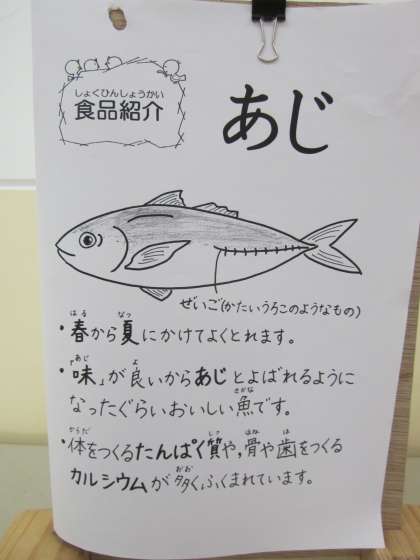 しょくひんしょうかい
食品紹介
あじ
ぜいご(かたいうろこのようなもの)
・春から夏にかけてよくとれます。
・「味」が良いからあじとよばれるように
なったぐらいおいしい魚です。
・体をつくるたんぱく質や,骨や歯をつくる
カルシウムが多くふくまれています。